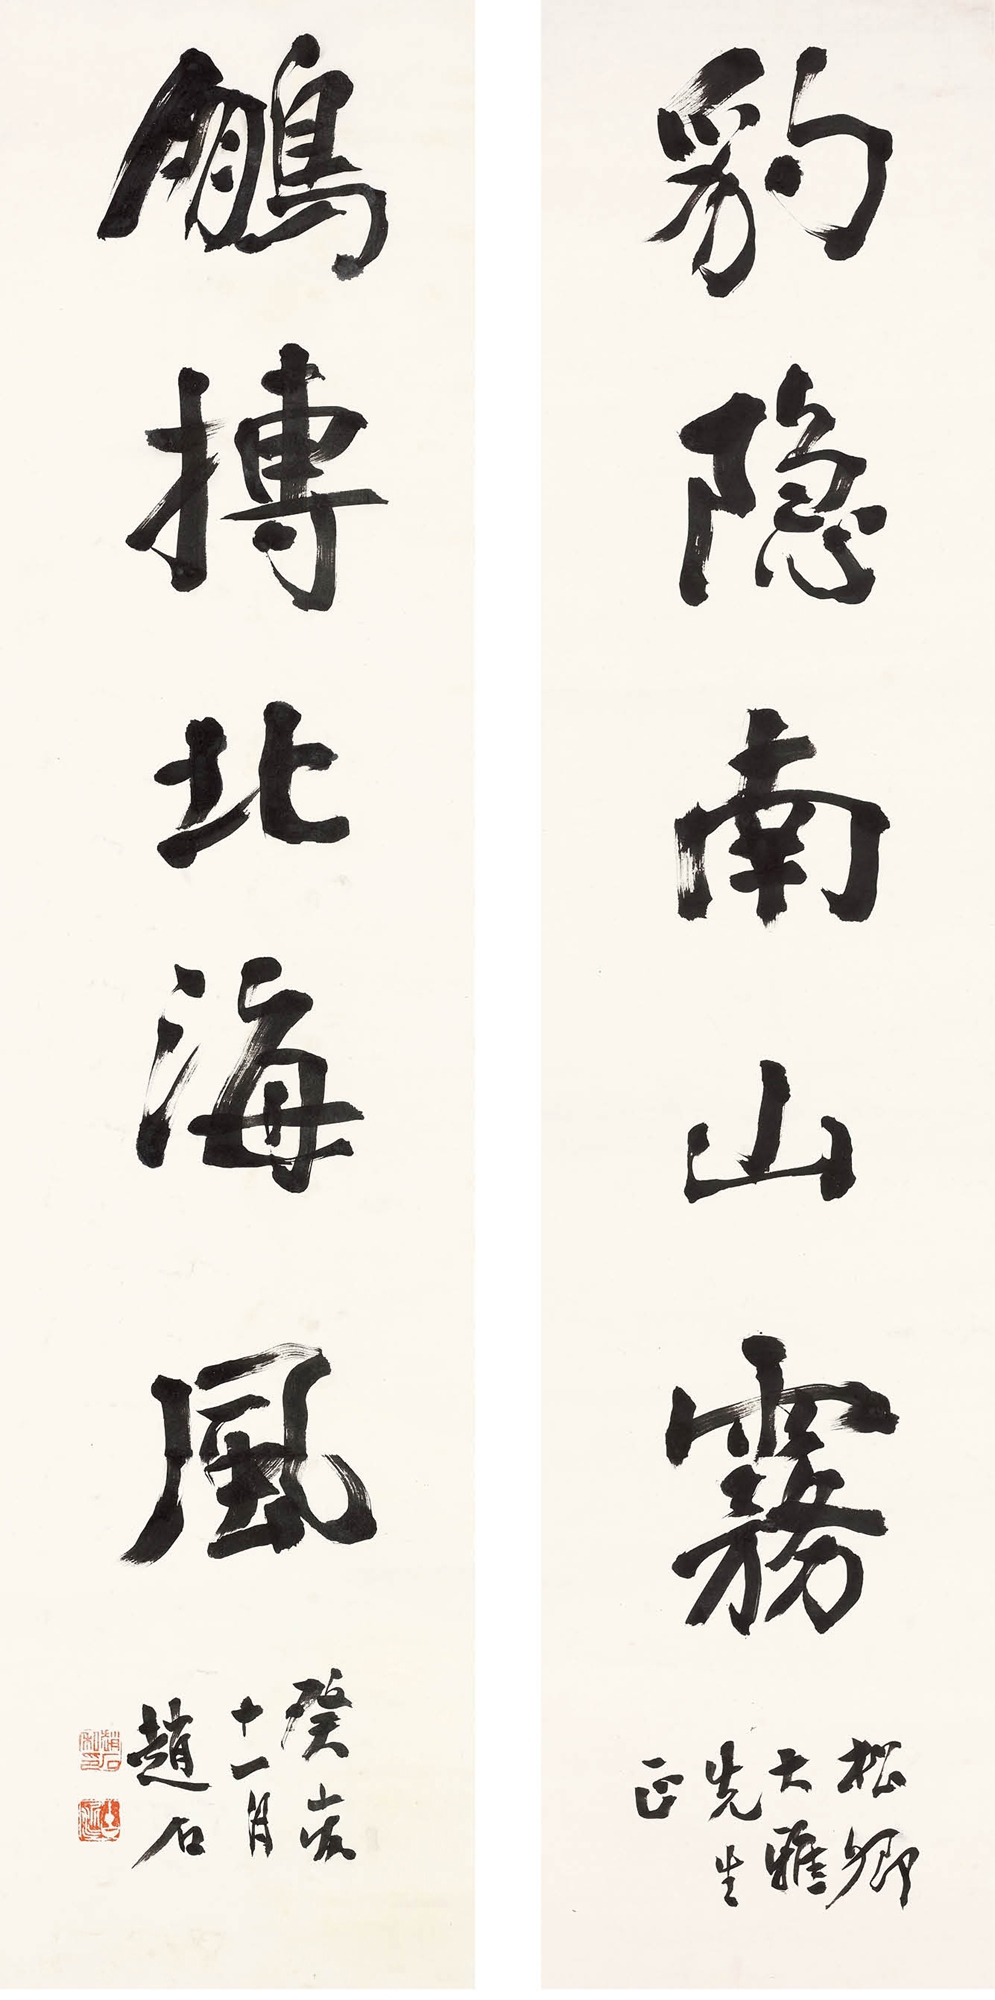 豹隐南山霧
松卿
大雅
先生
正
鵬搏北海風
癸亥
十一月
趙石
趙石私印